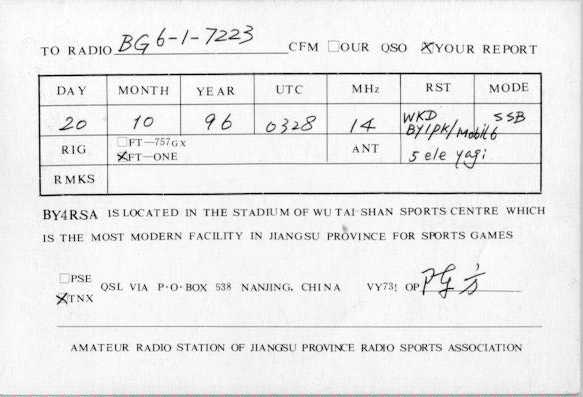 TO RADIO BG6-1-7223 CFM □OUR QSO ☒YOUR REPORT
DAY MONTH YEAR UTC MHz RST MODE
20 10 96 0328 14 WKD BY1PK/Mobil6 SSB
RIG □FT—757GX ☒FT—ONE ANT 5 ele yagi
RMKS
BY4RSA IS LOCATED IN THE STADIUM OF WU TAI-SHAN SPORTS CENTRE WHICH
IS THE MOST MODERN FACILITY IN JIANGSU PROVINCE FOR SPORTS GAMES
□PSE
☒TNX QSL VIA P·O·BOX 538 NANJING, CHINA VY73! OP
AMATEUR RADIO STATION OF JIANGSU PROVINCE RADIO SPORTS ASSOCIATION